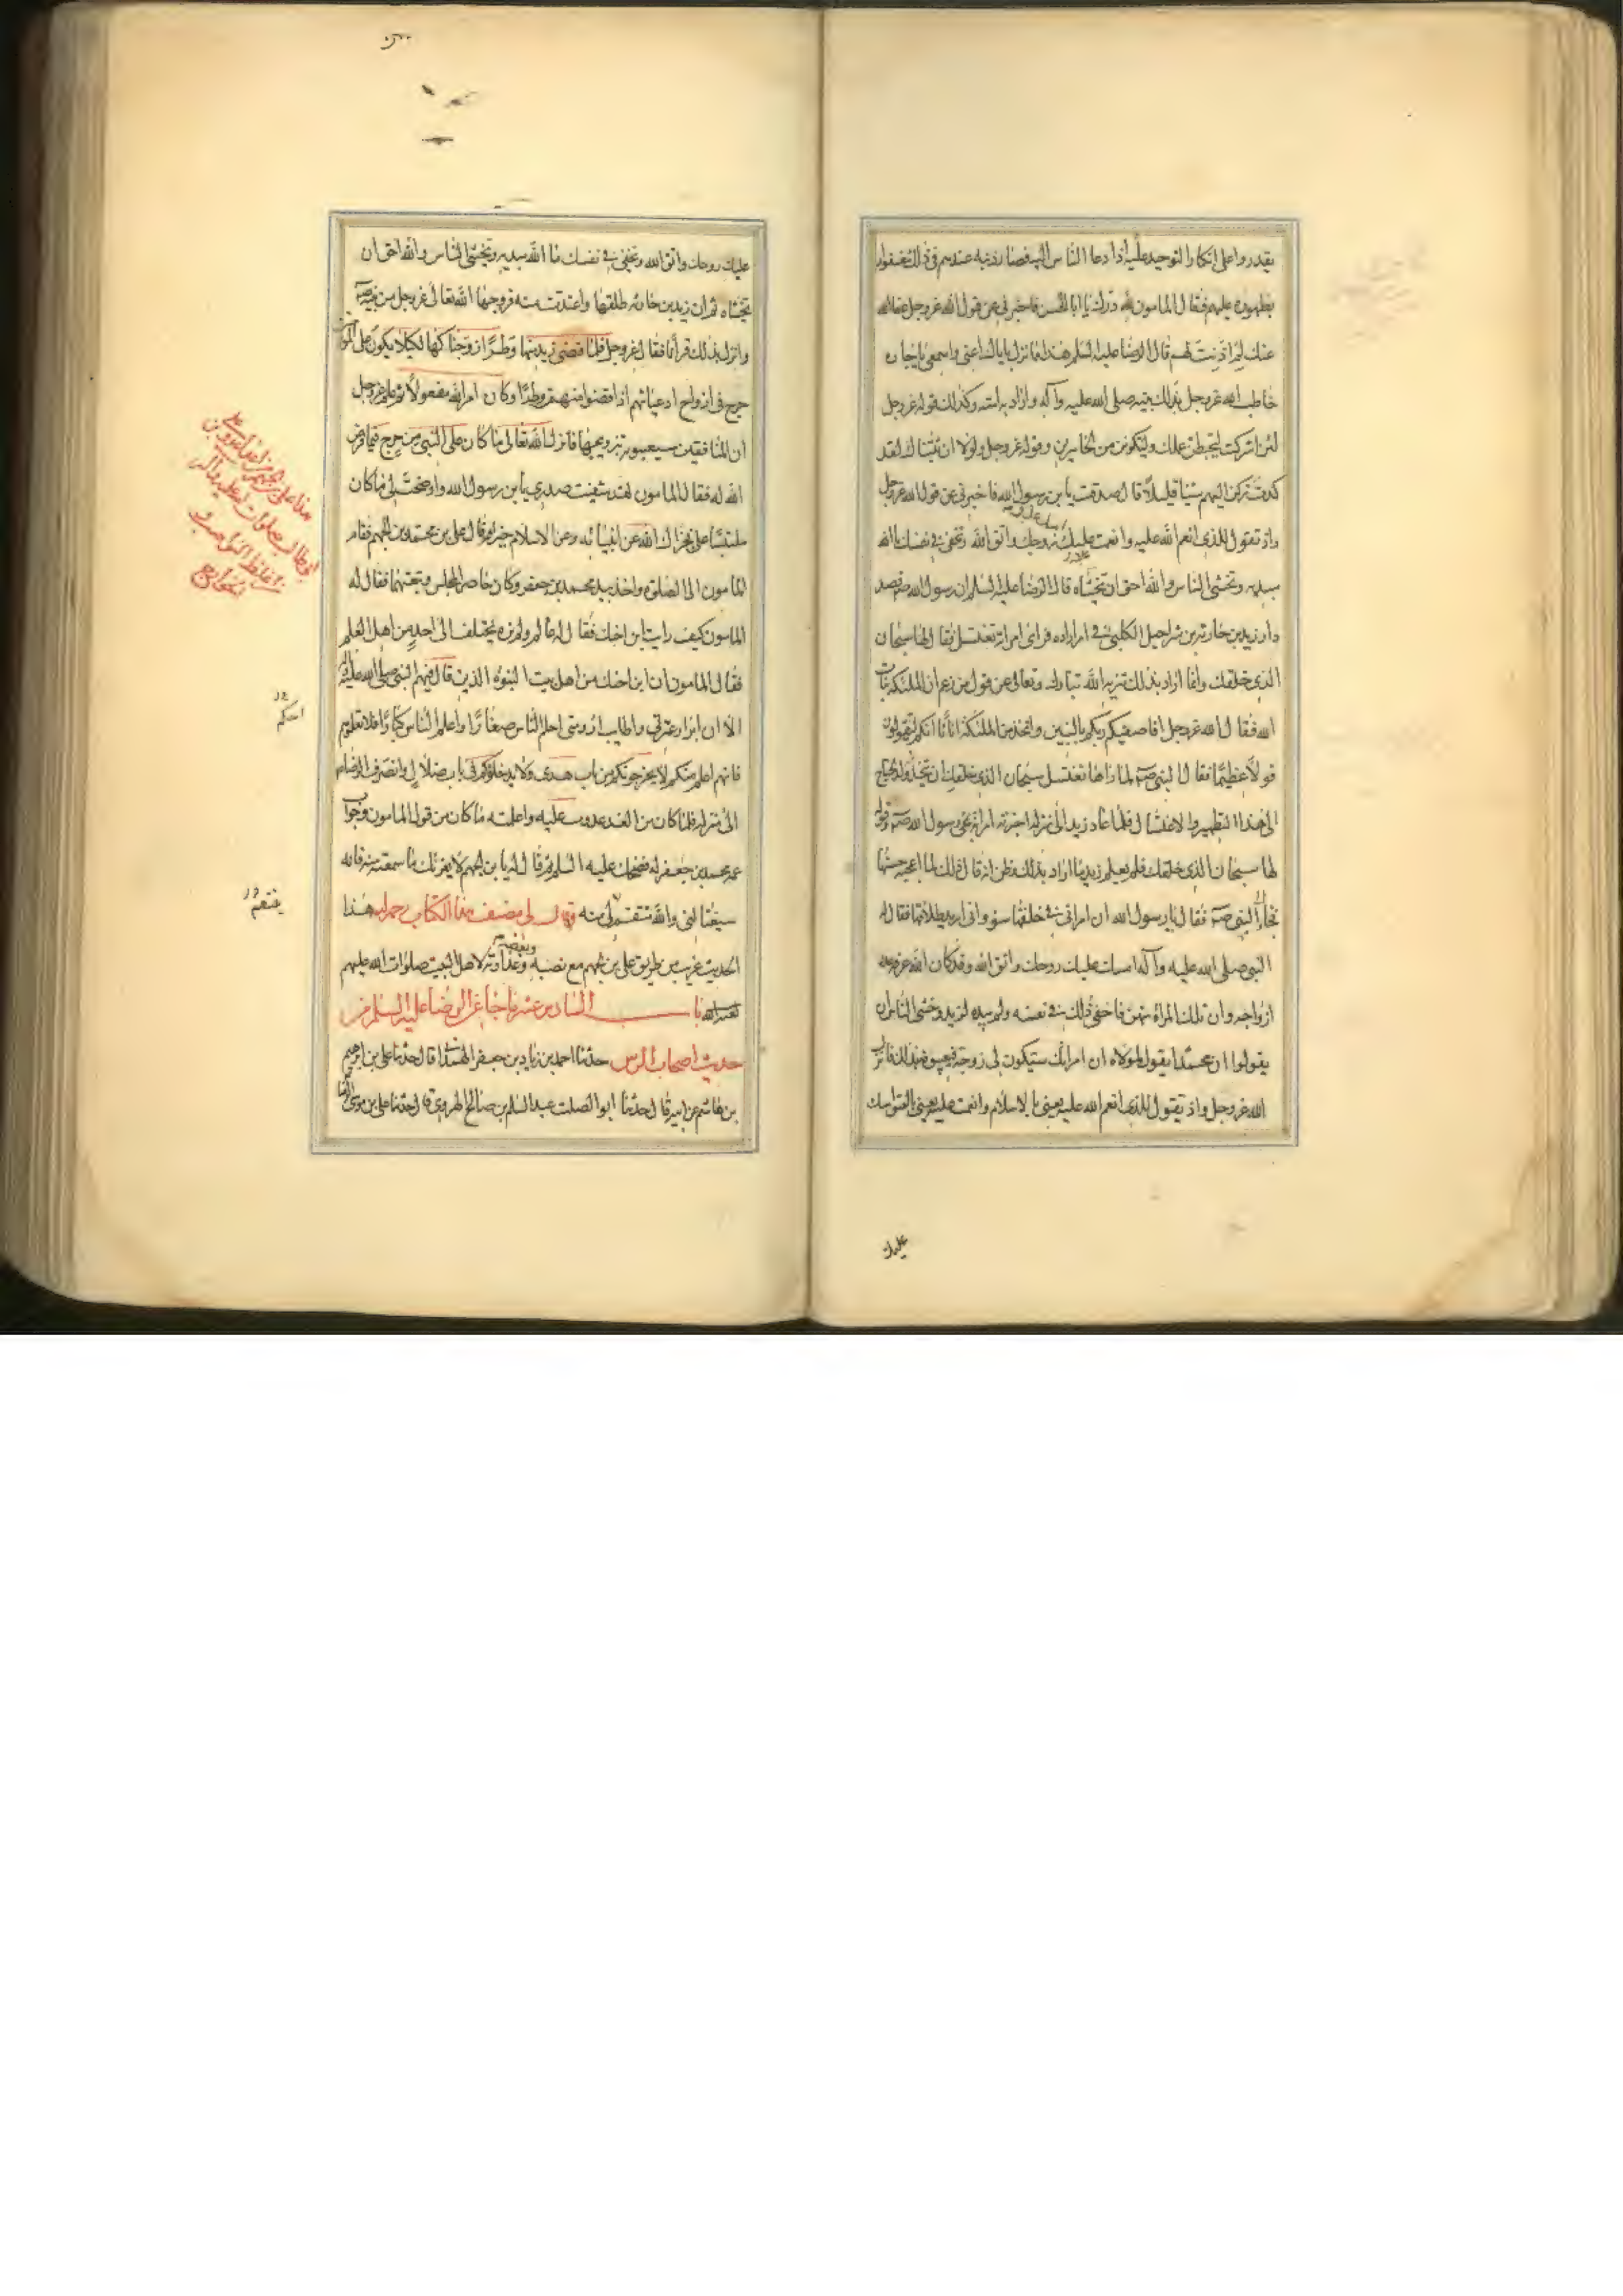 يقدروا على انكار التوحيد عليه اذا دعا الناس اليه فصار ذنبه عندهم في ذلك مغفورا
بظهوره عليهم فقال المامون لله درك يا ابا الحسن فاخبرني عن قول الله عز وجل عفا الله
عنك لم اذنت لهم قال الرضا عليه السلم هذا مما نزل باياك اعني واسمعي يا جاره
خاطب الله عز وجل بذلك نبيه صلى الله عليه وآله واراد به امته وكذلك قوله عز وجل
لئن اشركت ليحبطن عملك ولتكونن من الخاسرين وقوله عز وجل ولولا ان ثبتناك لقد
كدت تركن اليهم شيئا قليلا قال صدقت يا بن رسول الله فاخبرني عن قول الله عز وجل
واذ تقول للذي انعم الله عليه وانعمت عليه امسك عليك زوجك واتق الله وتخفي في نفسك ما الله
مبديه وتخشى الناس والله احق ان تخشاه قال الرضا عليه السلم ان رسول الله صم قصد
دار زيد بن حارثة بن شراحيل الكلبي في امر اراده فراى امراته تغتسل فقال لها سبحان
الذي خلقك وانما اراد بذلك تنزيه الله تبارك وتعالى عن قول من زعم ان الملئكة بنات
الله فقال الله عز وجل افاصفيكم ربكم بالبنين واتخذ من الملئكة اناثا انكم لتقولون
قولا عظيما فقال النبي صم لما راها تغتسل سبحان الذي خلقك ان يتخذ ولدا يحتاج
الى هذا التطهير والاغتسال فلما عاد زيد الى منزله اخبرته امراته بمجئ رسول الله صم وقوله
لها سبحان الذي خلقك فلم يعلم زيد ما اراد بذلك وظن انه قال ذلك لما اعجبه حسنها
فجاء الى النبي صم فقال يا رسول الله ان امراتي في خلقها سوء واني اريد طلاقها فقال له
النبي صلى الله عليه وآله امسك عليك زوجك واتق الله وقد كان الله عز وجل عرفه
ازواجه وان تلك المراة منهن فاخفى ذلك في نفسه ولم يبده لزيد وخشى الناس ان
يقولوا ان محمدا يقول لمولاه ان امراتك ستكون لي زوجة فيعيبونه بذلك فانزل
الله عز وجل واذ تقول للذي انعم الله عليه يعني بالاسلام وانعمت عليه يعني بالعتق امسك
عليك
عليك زوجك واتق الله وتخفي في نفسك ما الله مبديه وتخشى الناس والله احق ان
تخشاه ثم ان زيد بن حارثه طلقها واعتدت منه فزوجها الله تعالى عز وجل من نبيه صم
وانزل بذلك قرآنا فقال عز وجل فلما قضى زيد منها وطرا زوجناكها لكيلا يكون على المومنين
حرج في ازواج ادعيائهم اذا قضوا منهن وطرا وكان امر الله مفعولا ثم علم عز وجل
ان المنافقين سيعيبونه بتزويجها فانزل الله تعالى ما كان على النبي من حرج فيما فرض
الله له فقال المامون لقد شفيت صدري يا بن رسول الله واوضحت لي ما كان
ملتبسا علي فجزاك الله عن انبيائه وعن الاسلام خيرا قال علي بن محمد بن الجهم فقام
المامون الى الصلوة واخذ بيد محمد بن جعفر وكان حاضر المجلس وتبعتهما فقال له
المامون كيف رايت ابن اخيك فقال له عالم ولم نره يختلف الى احد من اهل العلم
فقال المامون ان ابن اخيك من اهل بيت النبوة الذين قال فيهم النبي صلى الله عليه وآله
الا ان ابرار عترتي واطايب ارومتي احلم الناس صغارا واعلم الناس كبارا فلا تعلموهم
فانهم اعلم منكم لا يخرجونكم من باب هدى ولا يدخلونكم في باب ضلال وانصرف الرضا عم
الى منزله فلما كان من الغد غدوت عليه واعلمته ما كان من قول المامون وجواب
عمه محمد بن جعفر له فضحك عليه السلم ثم قال له يا بن الجهم لا يغرنك ما سمعته منه فانه
سيغتالني والله ينتقم لي منه قال لي مصنف هذا الكتاب رحمه الله هذا
الحديث غريب من طريق علي بن الجهم مع نصبه وبغضه وعداوته لاهل البيت صلوات الله عليهم
باب السادس عشر ما جاء عن الرضا عليه السلم من
حديث اصحاب الرس حدثنا احمد بن زياد بن جعفر الهمداني قال حدثنا علي بن ابرهيم
بن هاشم عن ابيه قال حدثنا ابو الصلت عبد السلم بن صالح الهروي قال حدثنا علي بن موسى الرضا
احكم
ينتقم